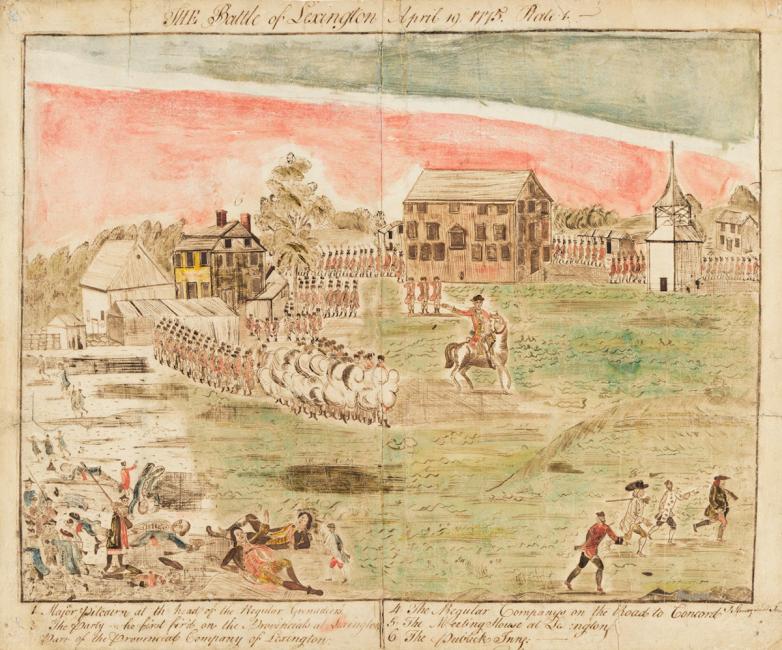 THE Battle of Lexington April 19 1775. Plate I.
6
1 Major Pitcairn at the head of the Regular Grenadiers.
2 The Party who first fired on the Provincials at Lexington
Part of the Provincial Company of Lexington.
4 The Regular Companies on the Road to Concord
5 The Meeting House at Lexington
6 The Publick Inn.